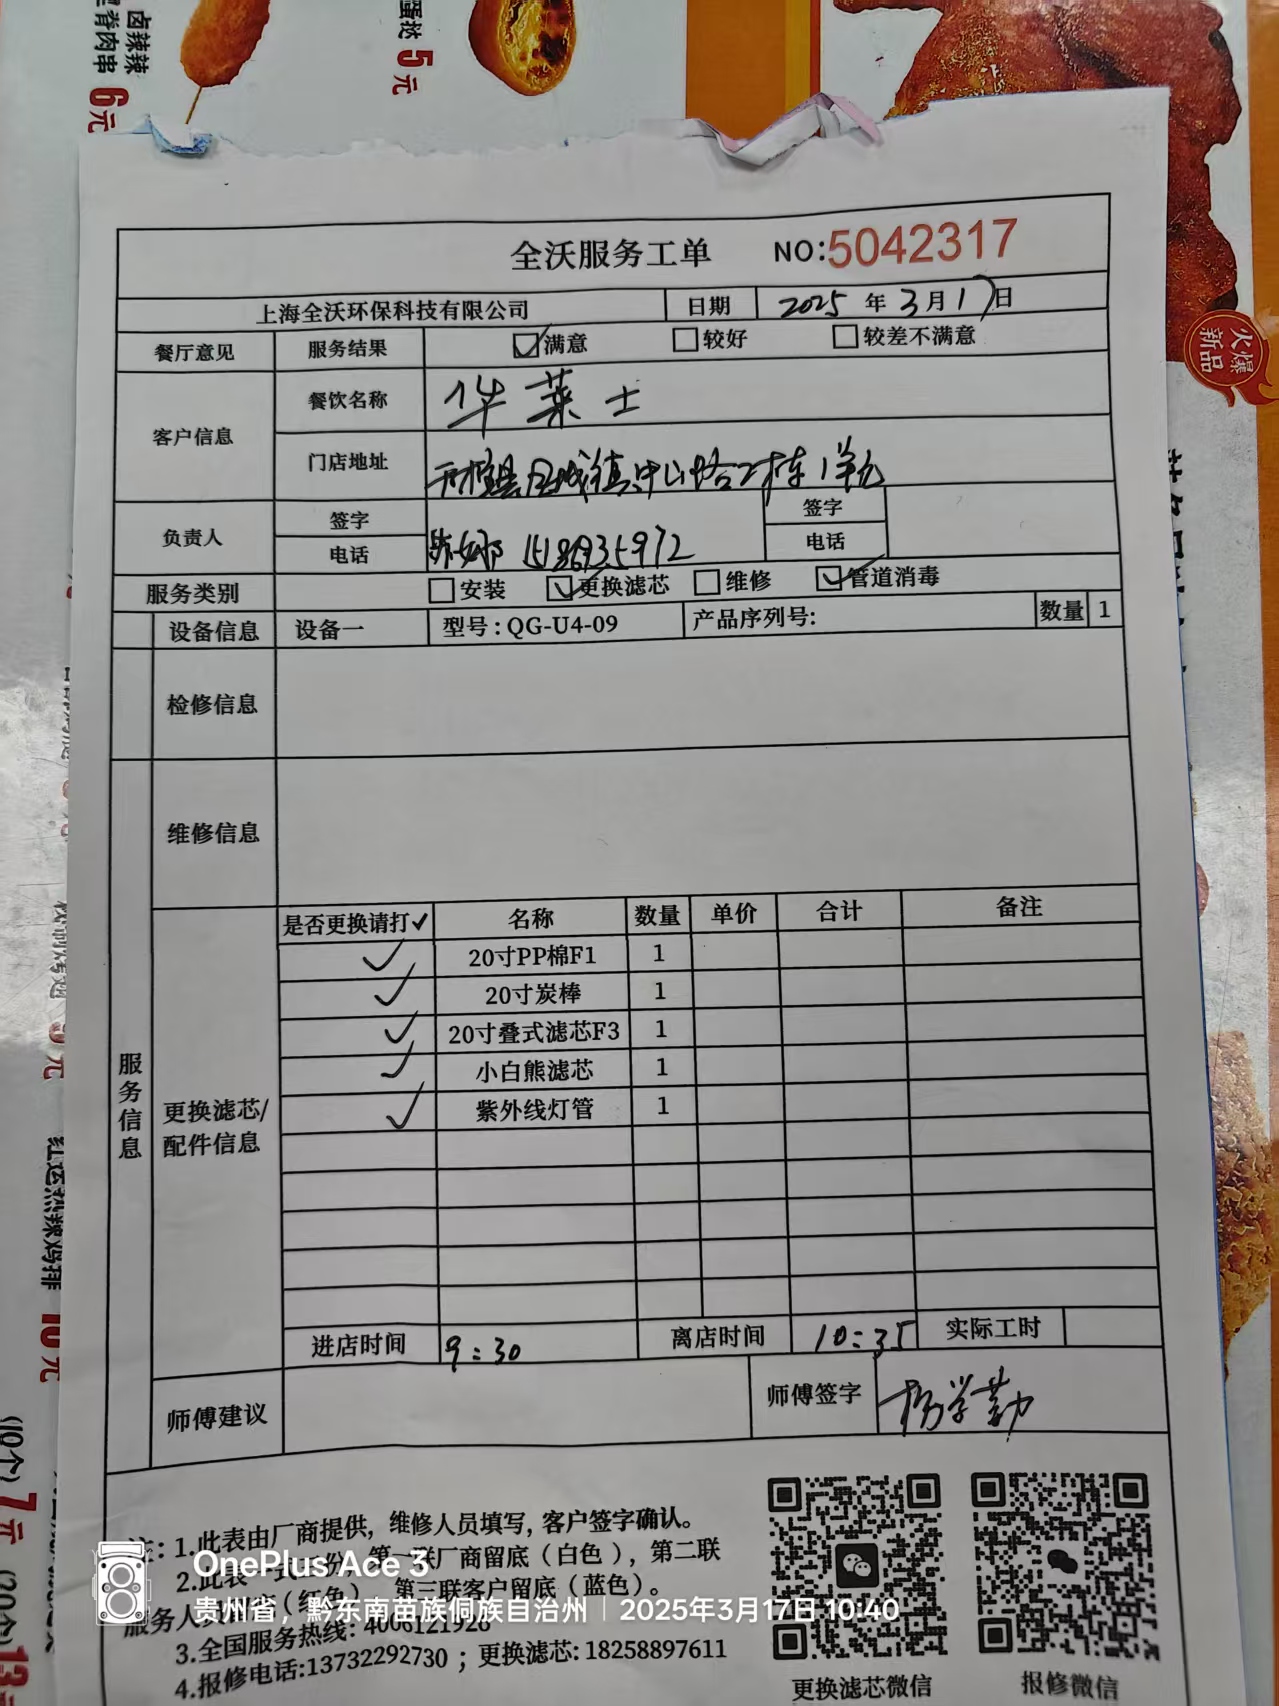 卤辣辣
里脊肉串
6元
蛋挞
5元
火爆
新品
全沃服务工单 NO:5042317
上海全沃环保科技有限公司 日期 2025 年 3 月 17 日
餐厅意见 服务结果 满意 较好 较差不满意
客户信息 餐饮名称 华莱士
门店地址 中山 2栋1单元
负责人 签字 签字
电话 电话
服务类别 安装 更换滤芯 维修 管道消毒
设备信息 设备一 型号:QG-U4-09 产品序列号: 数量 1
检修信息
维修信息
服务信息
更换滤芯/
配件信息
是否更换请打✓ 名称 数量 单价 合计 备注
✓ 20寸PP棉F1 1
✓ 20寸炭棒 1
✓ 20寸叠式滤芯F3 1
✓ 小白熊滤芯 1
✓ 紫外线灯管 1
进店时间 9:30 离店时间 10:35 实际工时
师傅建议 师傅签字 杨学勤
注: 1.此表由厂商提供, 维修人员填写, 客户签字确认。
2.此表一式三份, 第一联厂商留底(白色), 第二联
服务人员 (红色) 第三联客户留底(蓝色)。
3.全国服务热线: 4006121926
4.报修电话:13732292730 ; 更换滤芯: 18258897611
更换滤芯微信 报修微信
OnePlus Ace 3
贵州省, 黔东南苗族侗族自治州 | 2025年3月17日 10:40
10元
(10个) 7元
(20个) 13元